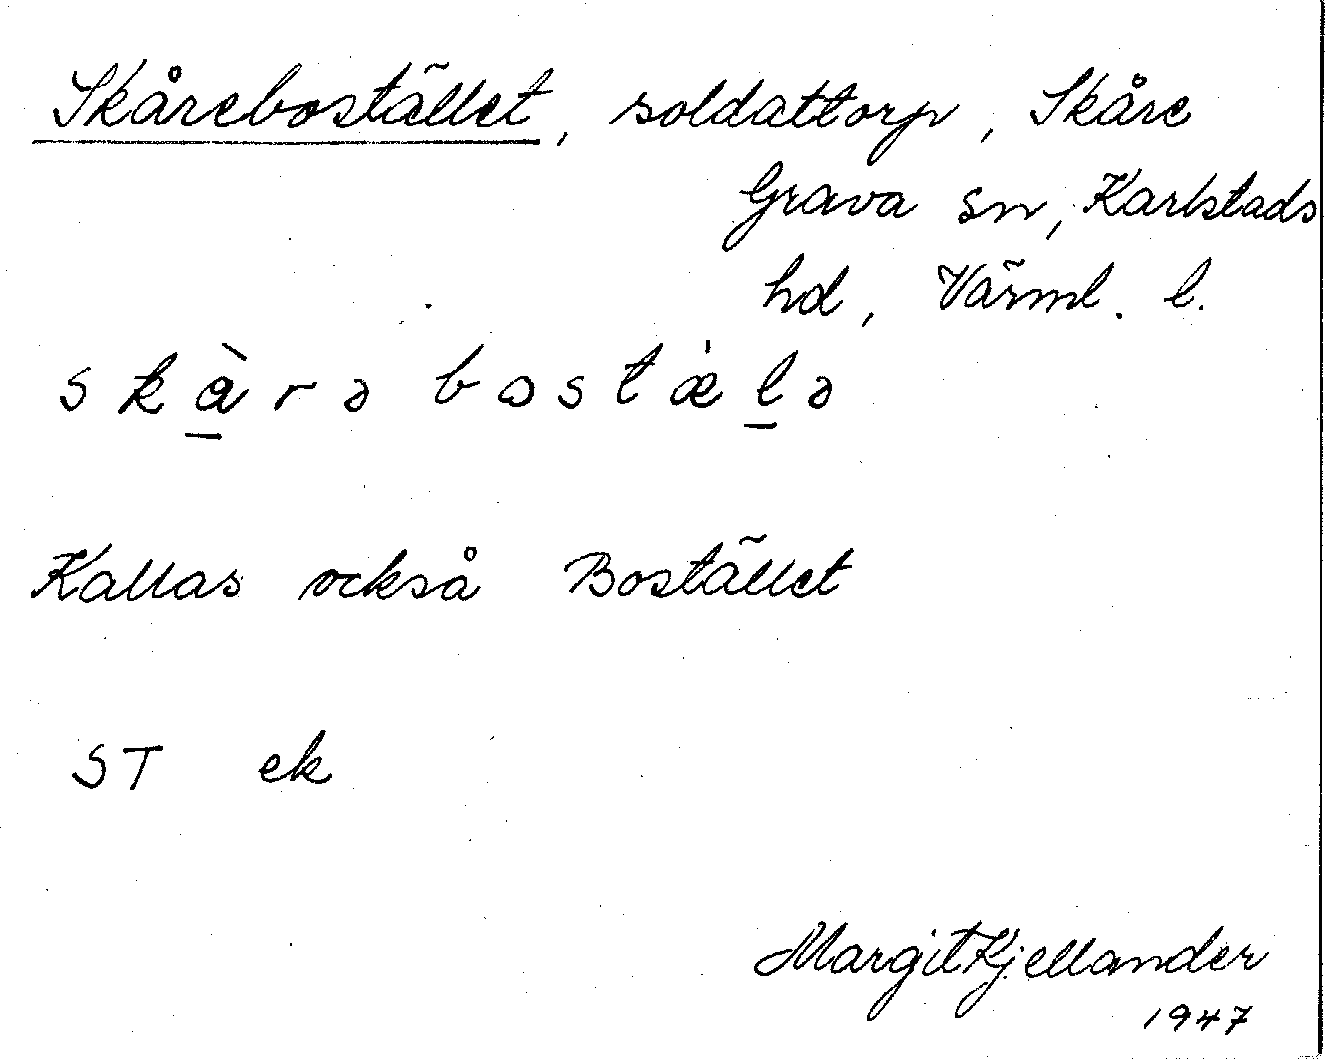 Skårebostället, soldattorp, Skåre
Grava sn, Karlstads
hd, Värml. l.
skàrə bostæ̍lə
Kallas också Bostället
ST ek
Margit Kjellander
1947